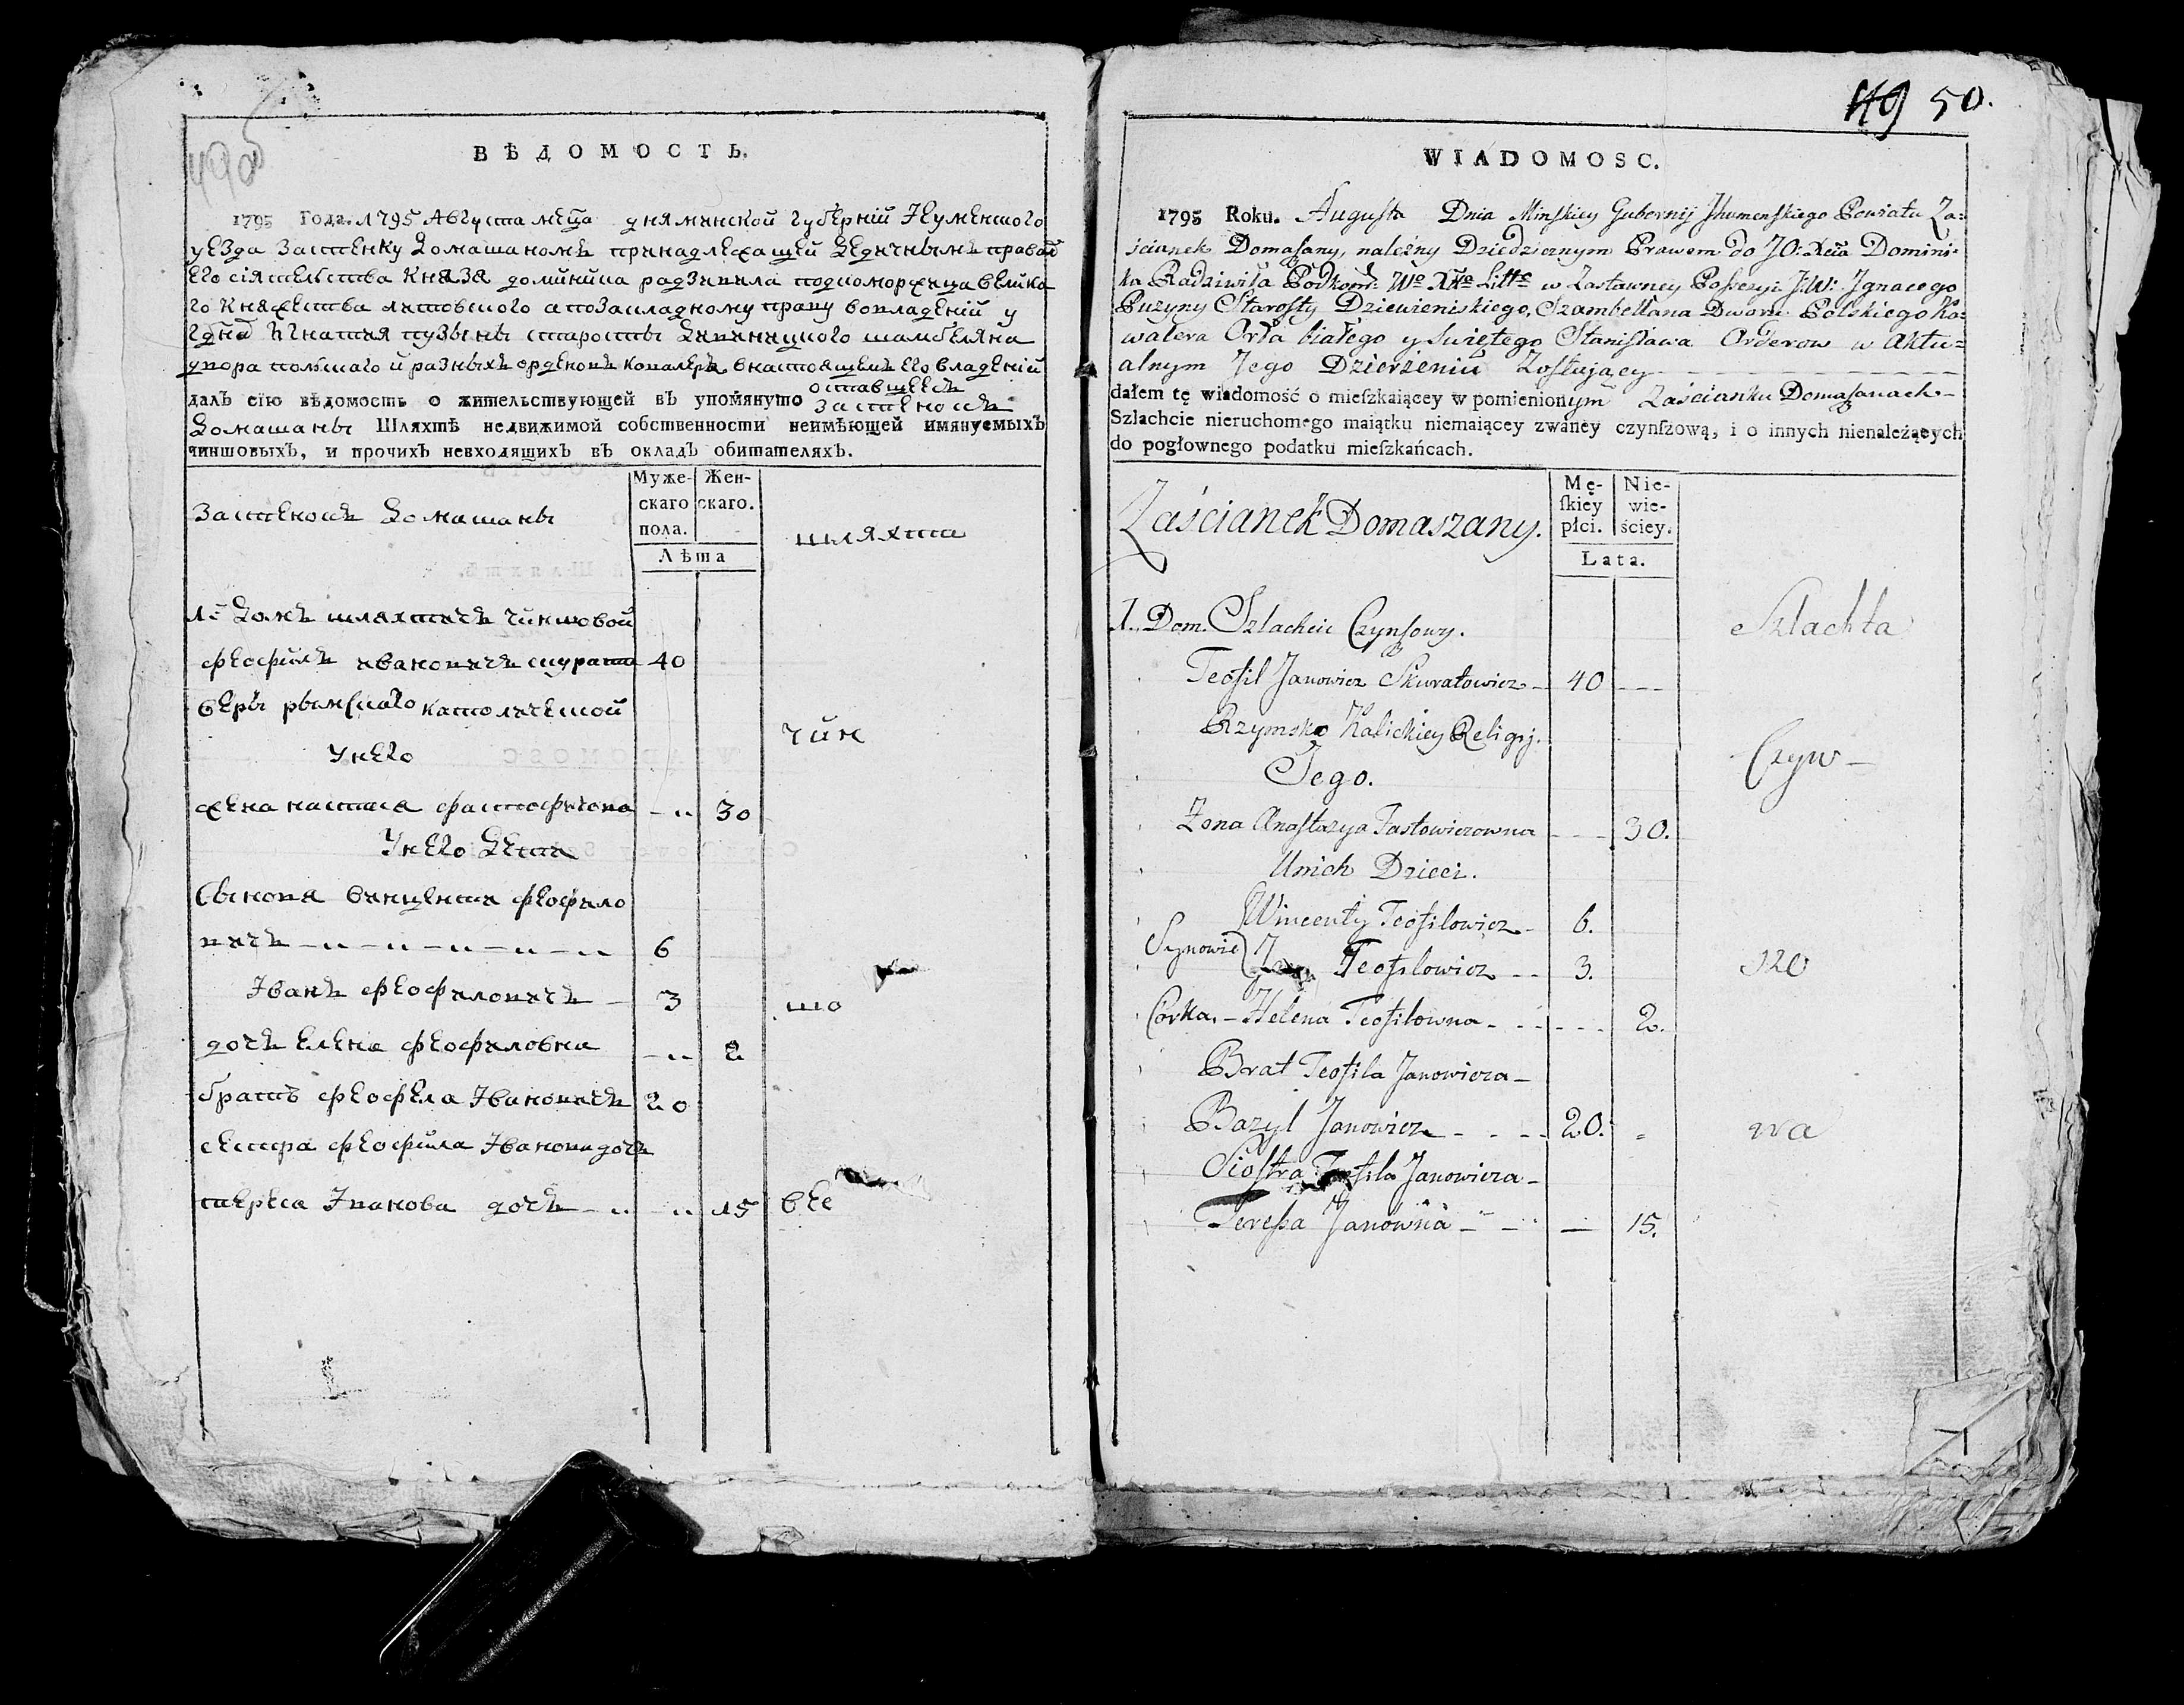 49об
ВѢДОМОСТЬ.
1795 Года. 1795 Августа мѣца дня минской губернїй Игуменского
уезда застенку Домашаномъ принадлежащей Дедичнымъ правом
Его сіятельства Князя доминика радзивила подкоморжица велико
го Княжества литовского а позакладному праву вовладений у
Игнатия пузыны старосты шамбеляна
двора полскаго и разныхъ орденовъ кавалера внастоящемъ его владений
оставшеесъ
далъ сїю вѣдомость о жительствующей въ упомянуто застенокъ
Домашаны Шляхтѣ недвижимой собственности неимѣющей имянуемыхъ
чиншовыхъ, и прочихъ невходящихъ въ окладъ обитателяхъ.
Муже- Жен-
скаго скаго.
пола.
Лѣта
Застенокъ Домашаны
шляхта
1. Домъ шляхтичъ чиншовой
феофилъ ивановичъ скурато 40
веры рымскаго католической
чин
Унего
жена настася фастофичова - 30
Унего Дети
Сынова винцента феофило
вичъ - - - - - 6
Иванъ феофиловичъ - 3
шо
дочъ елена феофиловна - 2
братъ феофела Ивановичъ 20
сестра феофила Иванова дочъ
тереса Иванова дочъ - - 15
вее
49 50.
WIADOMOSC.
1795 Roku. Augusta Dnia Minskiey Gubernij Jhumenskiego Powiatu Za=
scianek Domaszany, należny Dziedzicznym Prawem do JO: Xcia Domini=
ka Radziwiła Podkom: Wo Xtwa Litto w Zastawney Possessyi JW: Jgnacego
Puzyny Starosty Dziewieniskiego, Szambellana Dworu Polskiego Ka=
walera Orła białego y świętego Stanisława Orderow w Aktu=
alnym Jego Dzierżeniu Zostujący
dałem tę wiadomość o mieſzkaiącey w pomienionym Zaścianku Domaszanach
Szlachcie nieruchomego maiątku niemaiącey zwáney czynſzową, i o innych nienależących
do pogłownego podatku mieſzkańcach.
Mę- Nie-
ſkiey wie-
płci. ściey.
Lata.
Zaścianek Domaszany.
1. Dom. Szlachcic Czynszowy.
Szlachta
Teofil Janowicz Skuratowicz - 40
Rzymsko Katickiey Religij.
Czyn -
Jego.
Zona Anastazya Fastowiczowna - 30.
Unich Dzieci.
Wincenty Teofilowicz - 6.
Synowie Teofilowicz - 3.
szo
Corka. - Helena Teofilowna - 2.
Brat Teofila Janowicza -
Bazyl Janowicz - 20.
wa
Siostra Teofila Janowicza -
Teressa Janowna - 15.